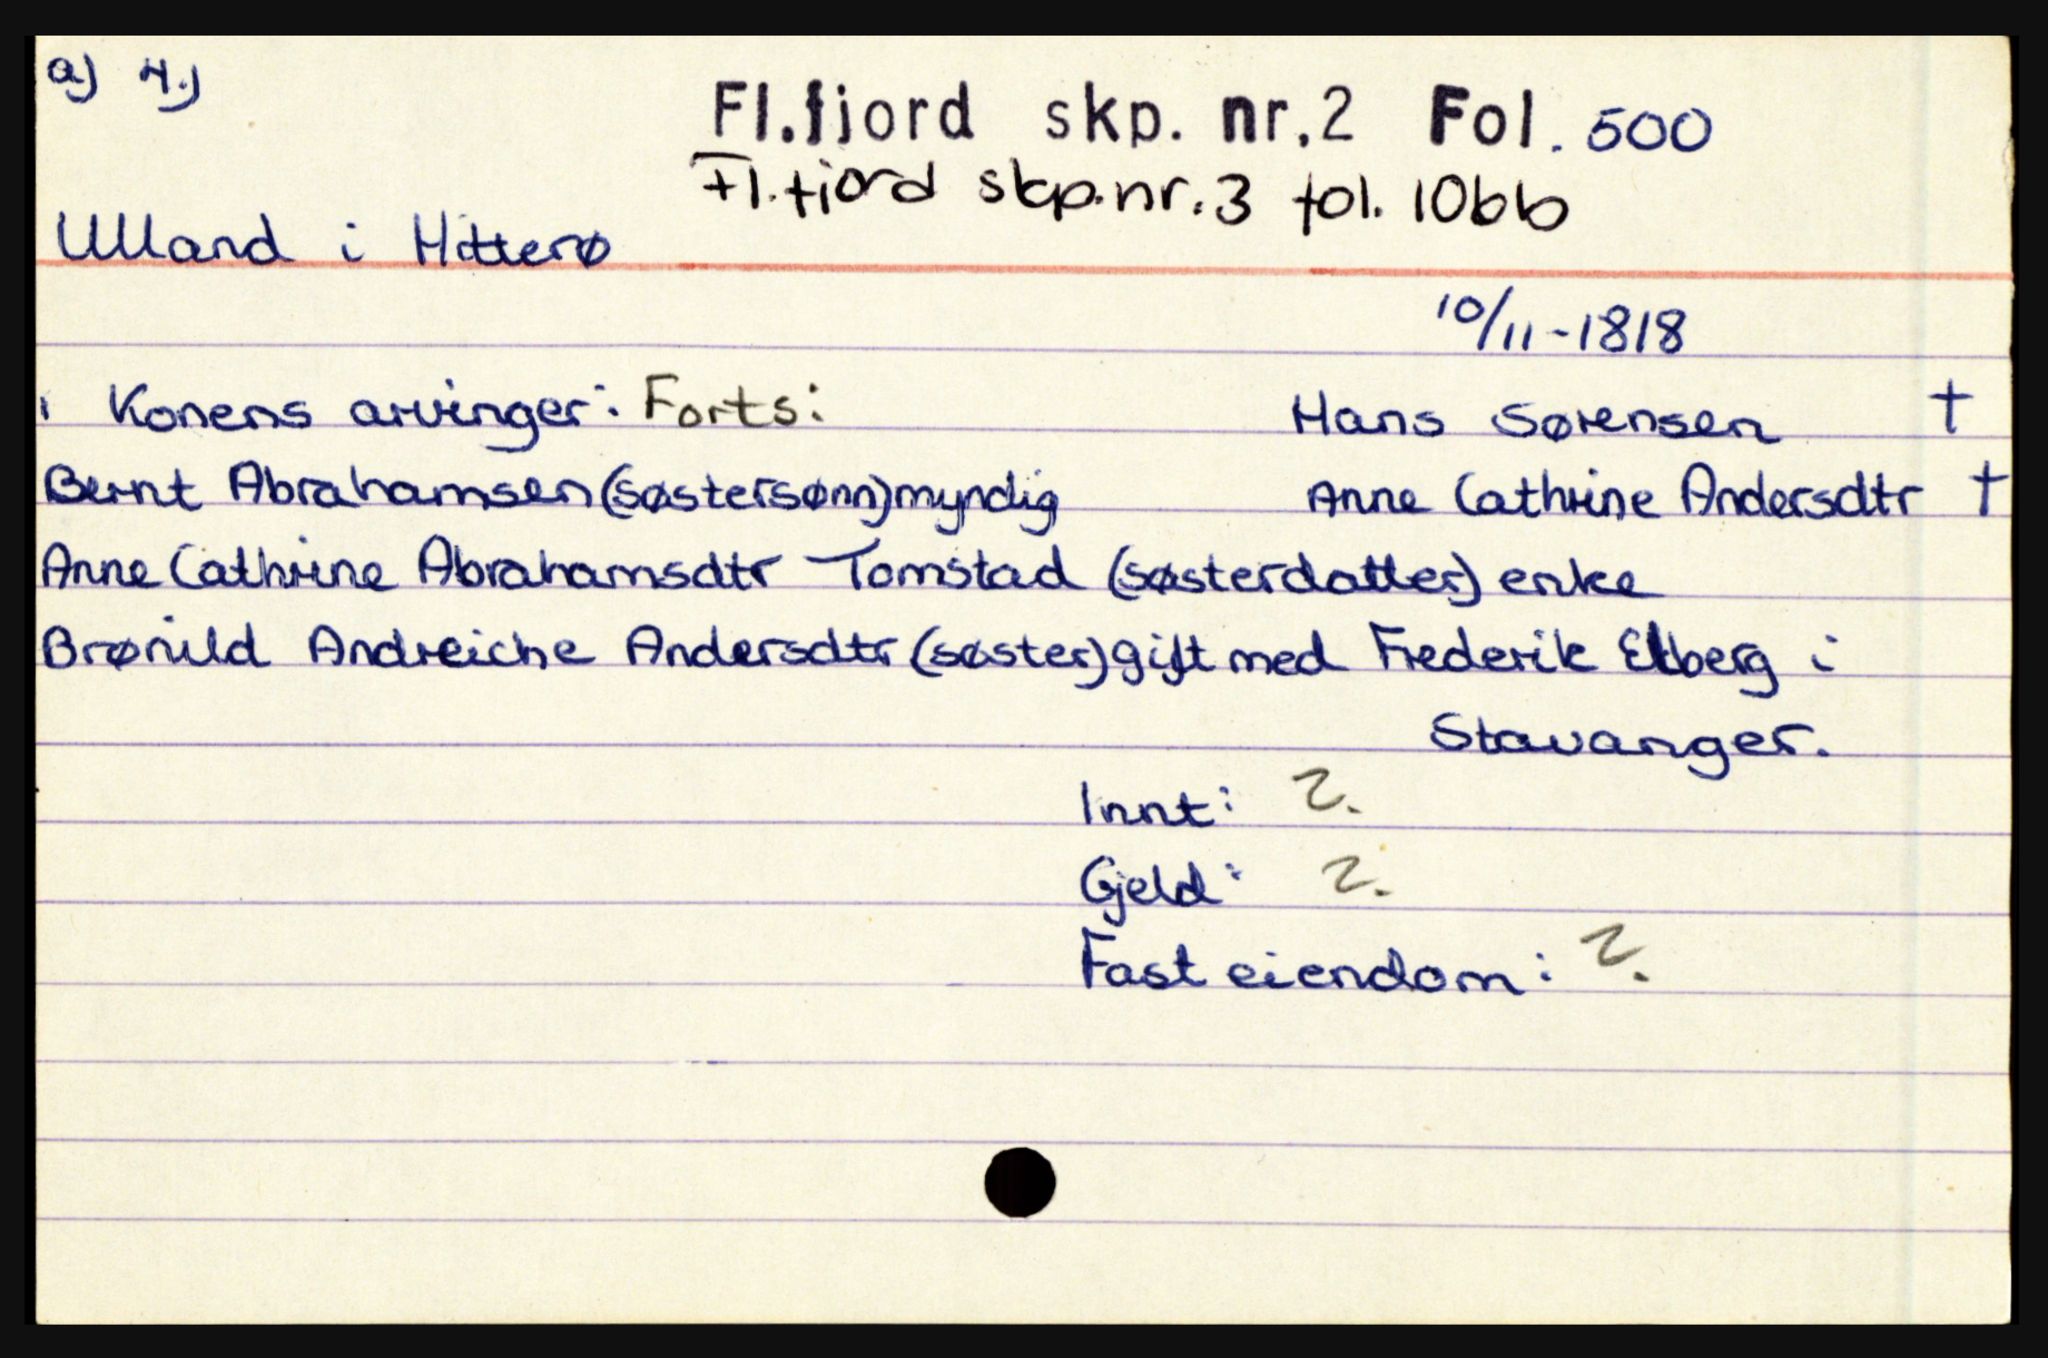 a) 4.)
Fl.fjord skp. nr.2 Fol. 500
Fl.fjord skp.nr.3 fol. 106b
Ulland i Hitterø
10/11-1818
Konens arvinger: Forts:
Hans Sørensen †
Bernt Abrahamsen (søstersønn) myndig
Anne Cathrine Andersdtr †
Anne Cathrine Abrahamsdtr Tomstad (søsterdatter) enke
Brønild Andreiche Andersdtr (søster) gift med Frederik Elberg i
Stavanger.
Innt: ?
Gjeld: ?
Fast eiendom: ?